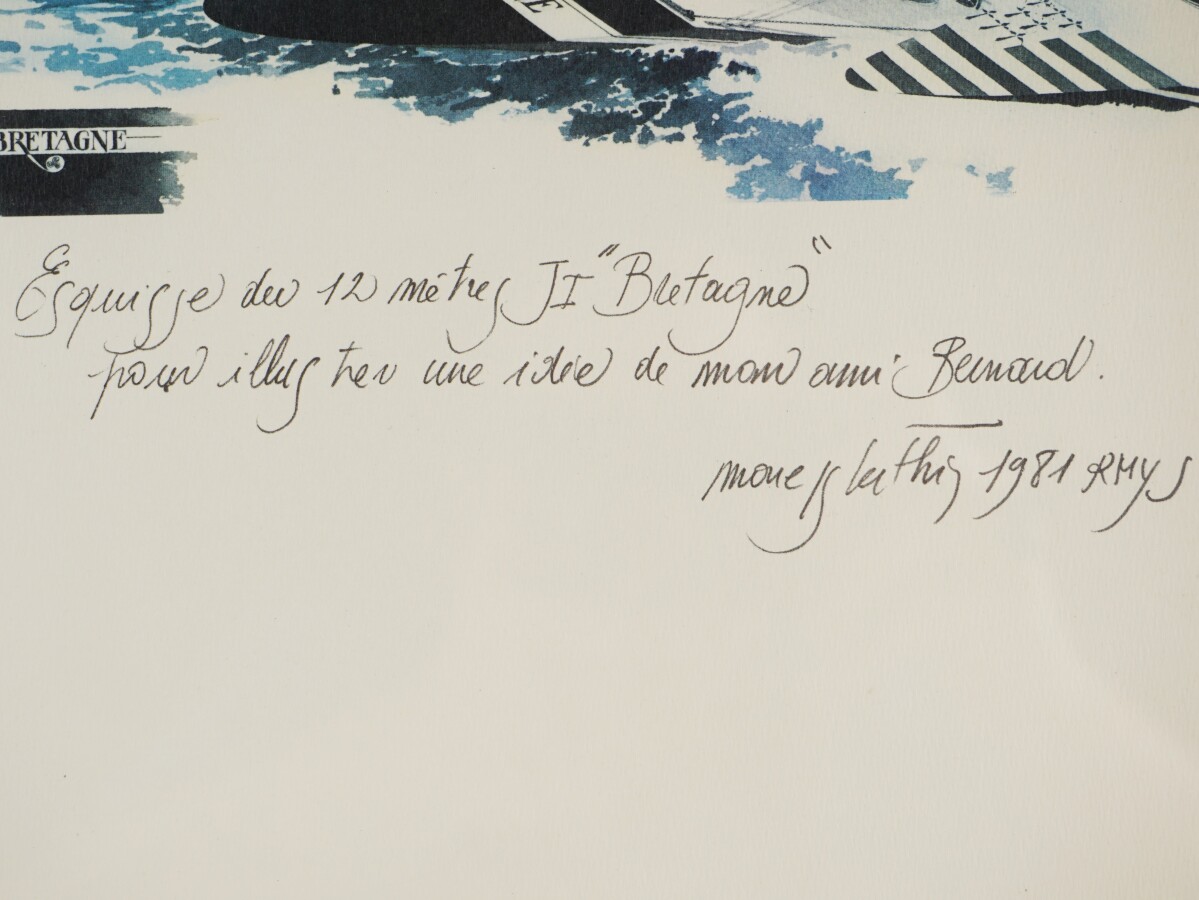 E
BRETAGNE
Esquisse du 12 mètres JI "Bretagne"
pour illustrer une idée de mon ami Bernard.
1981